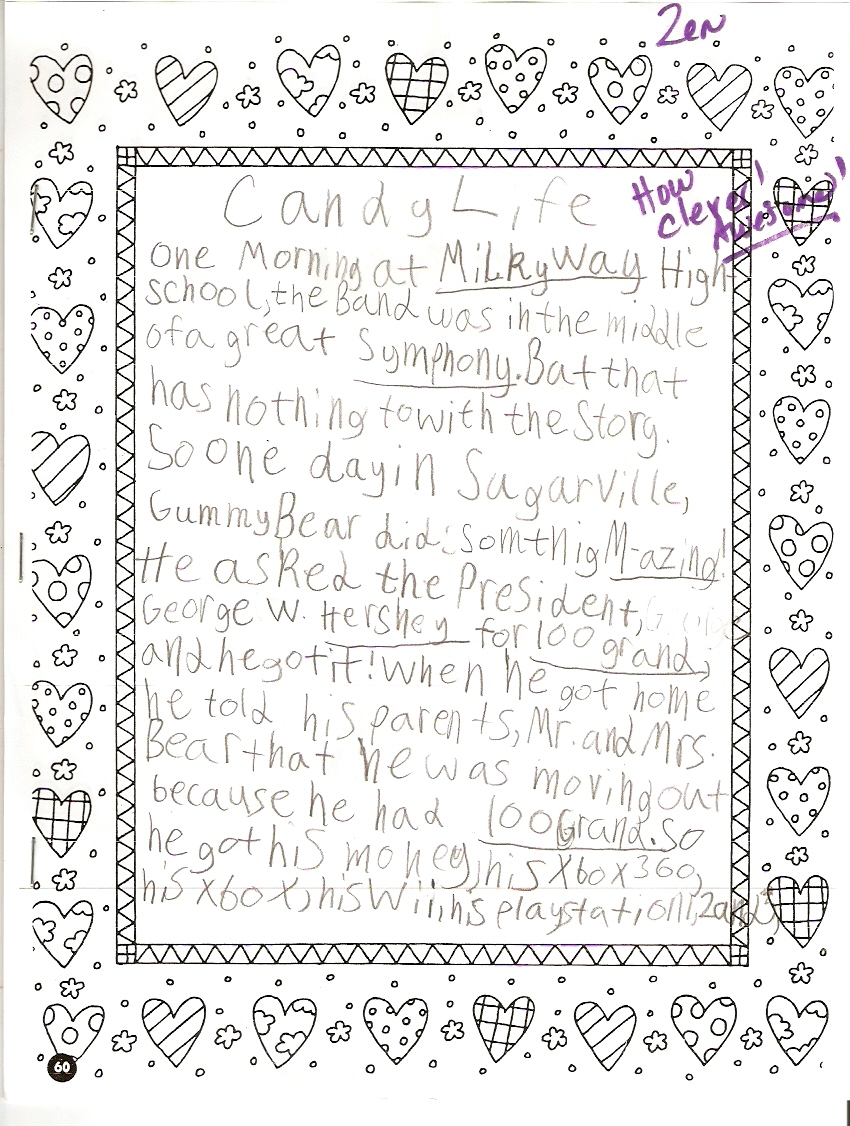 Zen
How
Clever!
Awesome!!
Candy Life
One Morning at Milkyway High
school, the Band was in the middle
of a great Symphony. But that
has nothing to with the Story.
So one day in Sugarville,
Gummy Bear did: somthnig M-azing!
He asked the President,
George W. Hershey for 100 grand,
and he got it! When he got home
he told his parents, Mr. and Mrs.
Bear that he was moving out
because he had 100 Grand. So
he got his money, his Xbox 360,
his Xbox, his Wii, his playstation 1, 2 and 3,
60